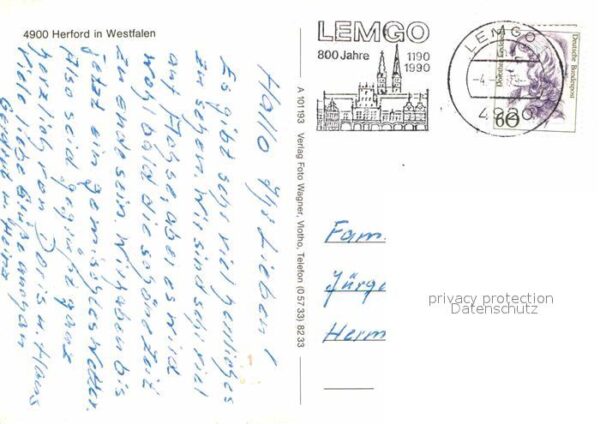 4900 Herford in Westfalen
LEMGO
800 Jahre 1190
1990
LEMGO
-4.
4920
Deutsche Bundespost
60
A 101193 Verlag Foto Wagner, Vlotho, Telefon (0 57 33) 82 33
Hallo Ihr Lieben!
Es gibt sehr viel herrliches
zu sehen. Wir sind sehr viel
auf Achse, aber es wird
wohl bald die schöne Zeit
zu ende sein. Wir haben bis
jetzt ein gemischtes Wetter.
Also seid gegrüßt ganz
herzlich von Doris u. Hans
Viele liebe Grüße
u. Heinz
Fam.
Jürge
Herm
privacy protection
Datenschutz